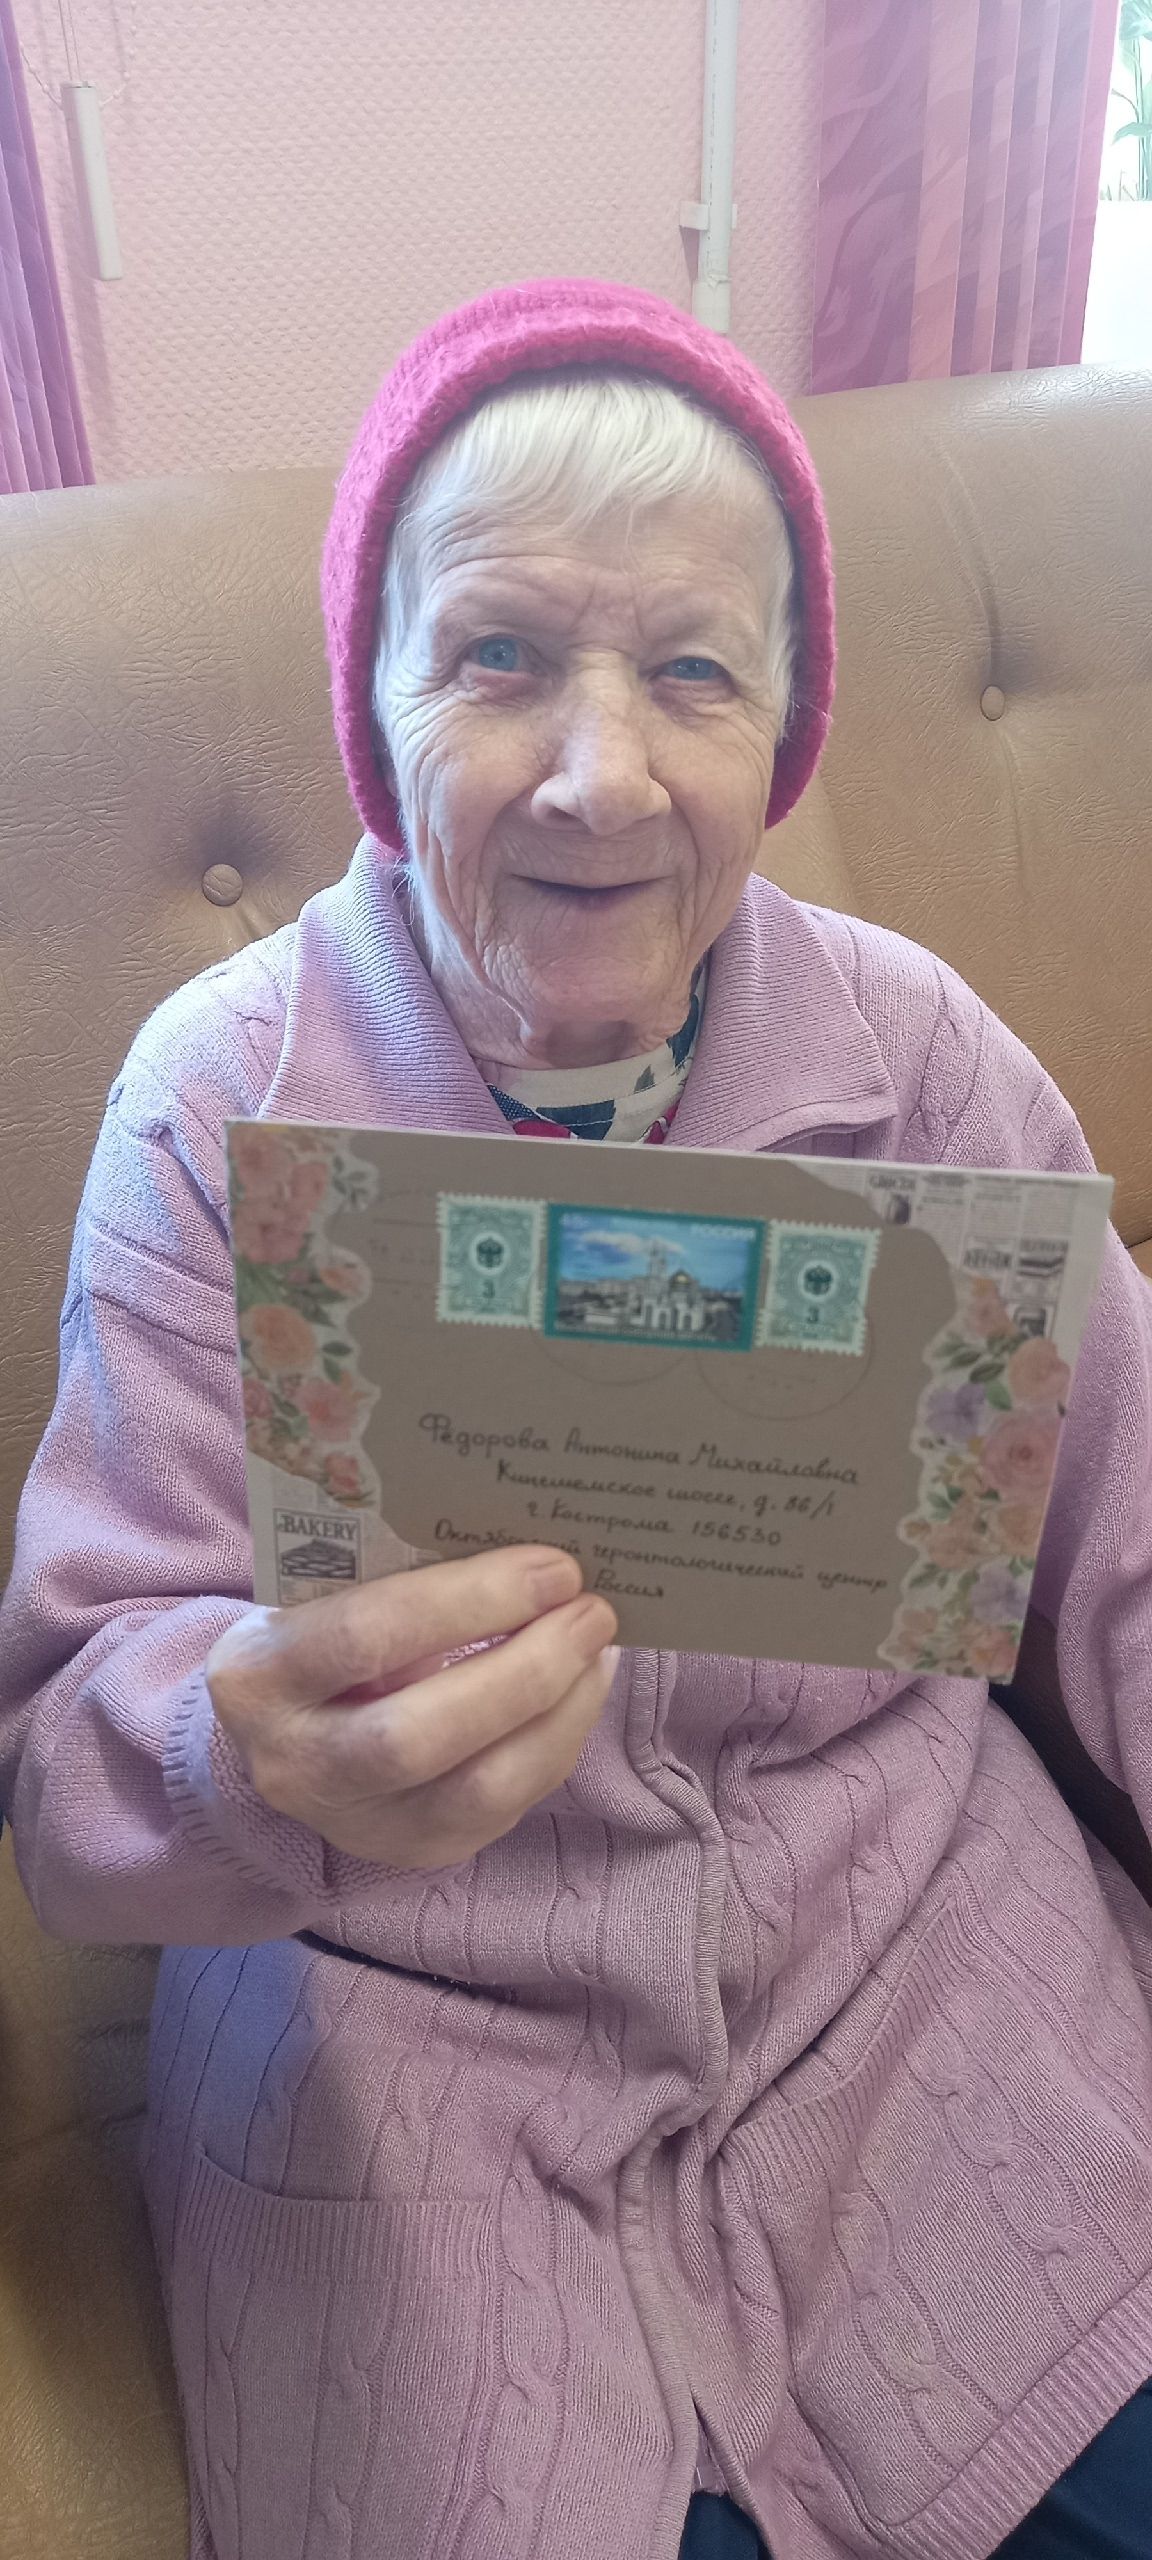 РОССИЯ
3
3
Фёдорова Антонина Михайловна
Кинешемское шоссе, д. 86/1
г. Кострома 156530
Октябрьский геронтологический центр
Россия
BAKERY